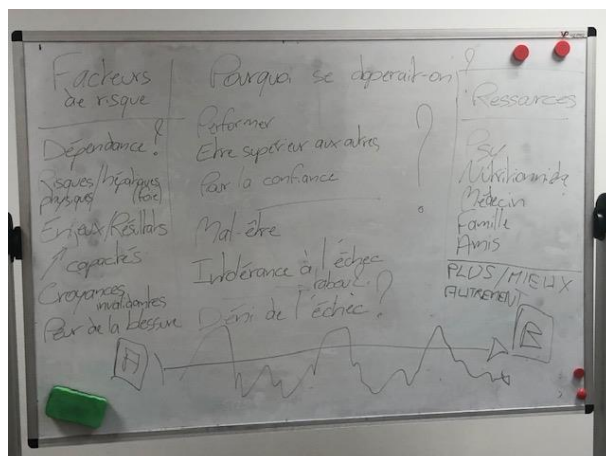 Facteurs
de risque
Dépendance?
Risques/hépatiques
physiques (foie)
Enjeux/Résultats
↗ capacités
Croyances
invalidantes
Peur de la blessure
Pourquoi se doperait-on?
Performer
Etre supérieur aux autres
Pour la confiance
?
Mal-être
Intolérance à l'échec
Déni de l'échec?
Ressources
Psy
Nutritionniste
Médecin
Famille
Amis
PLUS/MIEUX
AUTREMENT
A
B